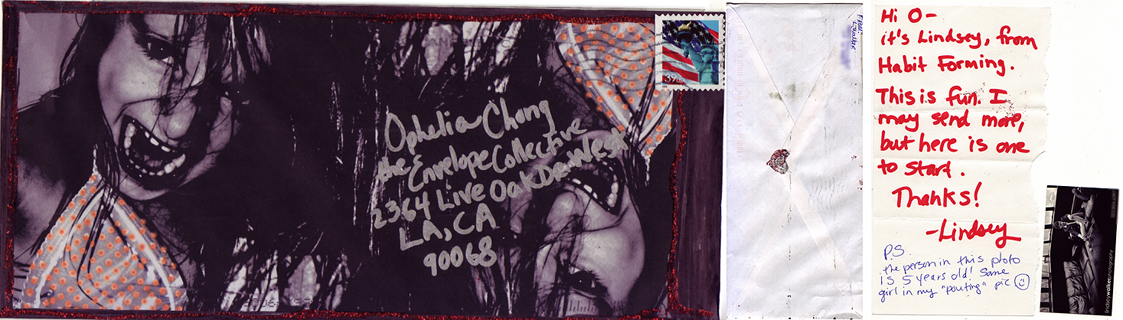 Ophelia Chong
the Envelope Collective
2364 Live Oak Dr. West
LA, CA
90068
39
From:
Hi O-
it's Lindsey, from
Habit Forming.
This is fun. I
may send more,
but here is one
to start.
Thanks!
-Lindsey
P.S.
the person in this photo
is 5 years old! Same
girl in my "pouting" pic